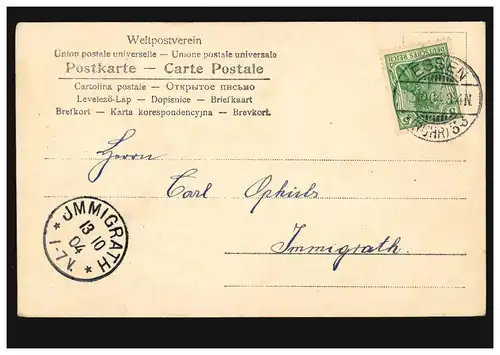 Weltpostverein
Union postale universelle — Unione postale universale
Postkarte — Carte Postale
Cartolina postale — Открытое письмо
Levelező-Lap — Dopisnice — Briefkaart
Brefkort — Karta korespondencyjna — Brevkort.
ESSEN
(RUHR)
DEUTSCHES REICH
Herrn
Carl
Immigrath.
* JMMIGRATH *
13 10
04
1-7N.